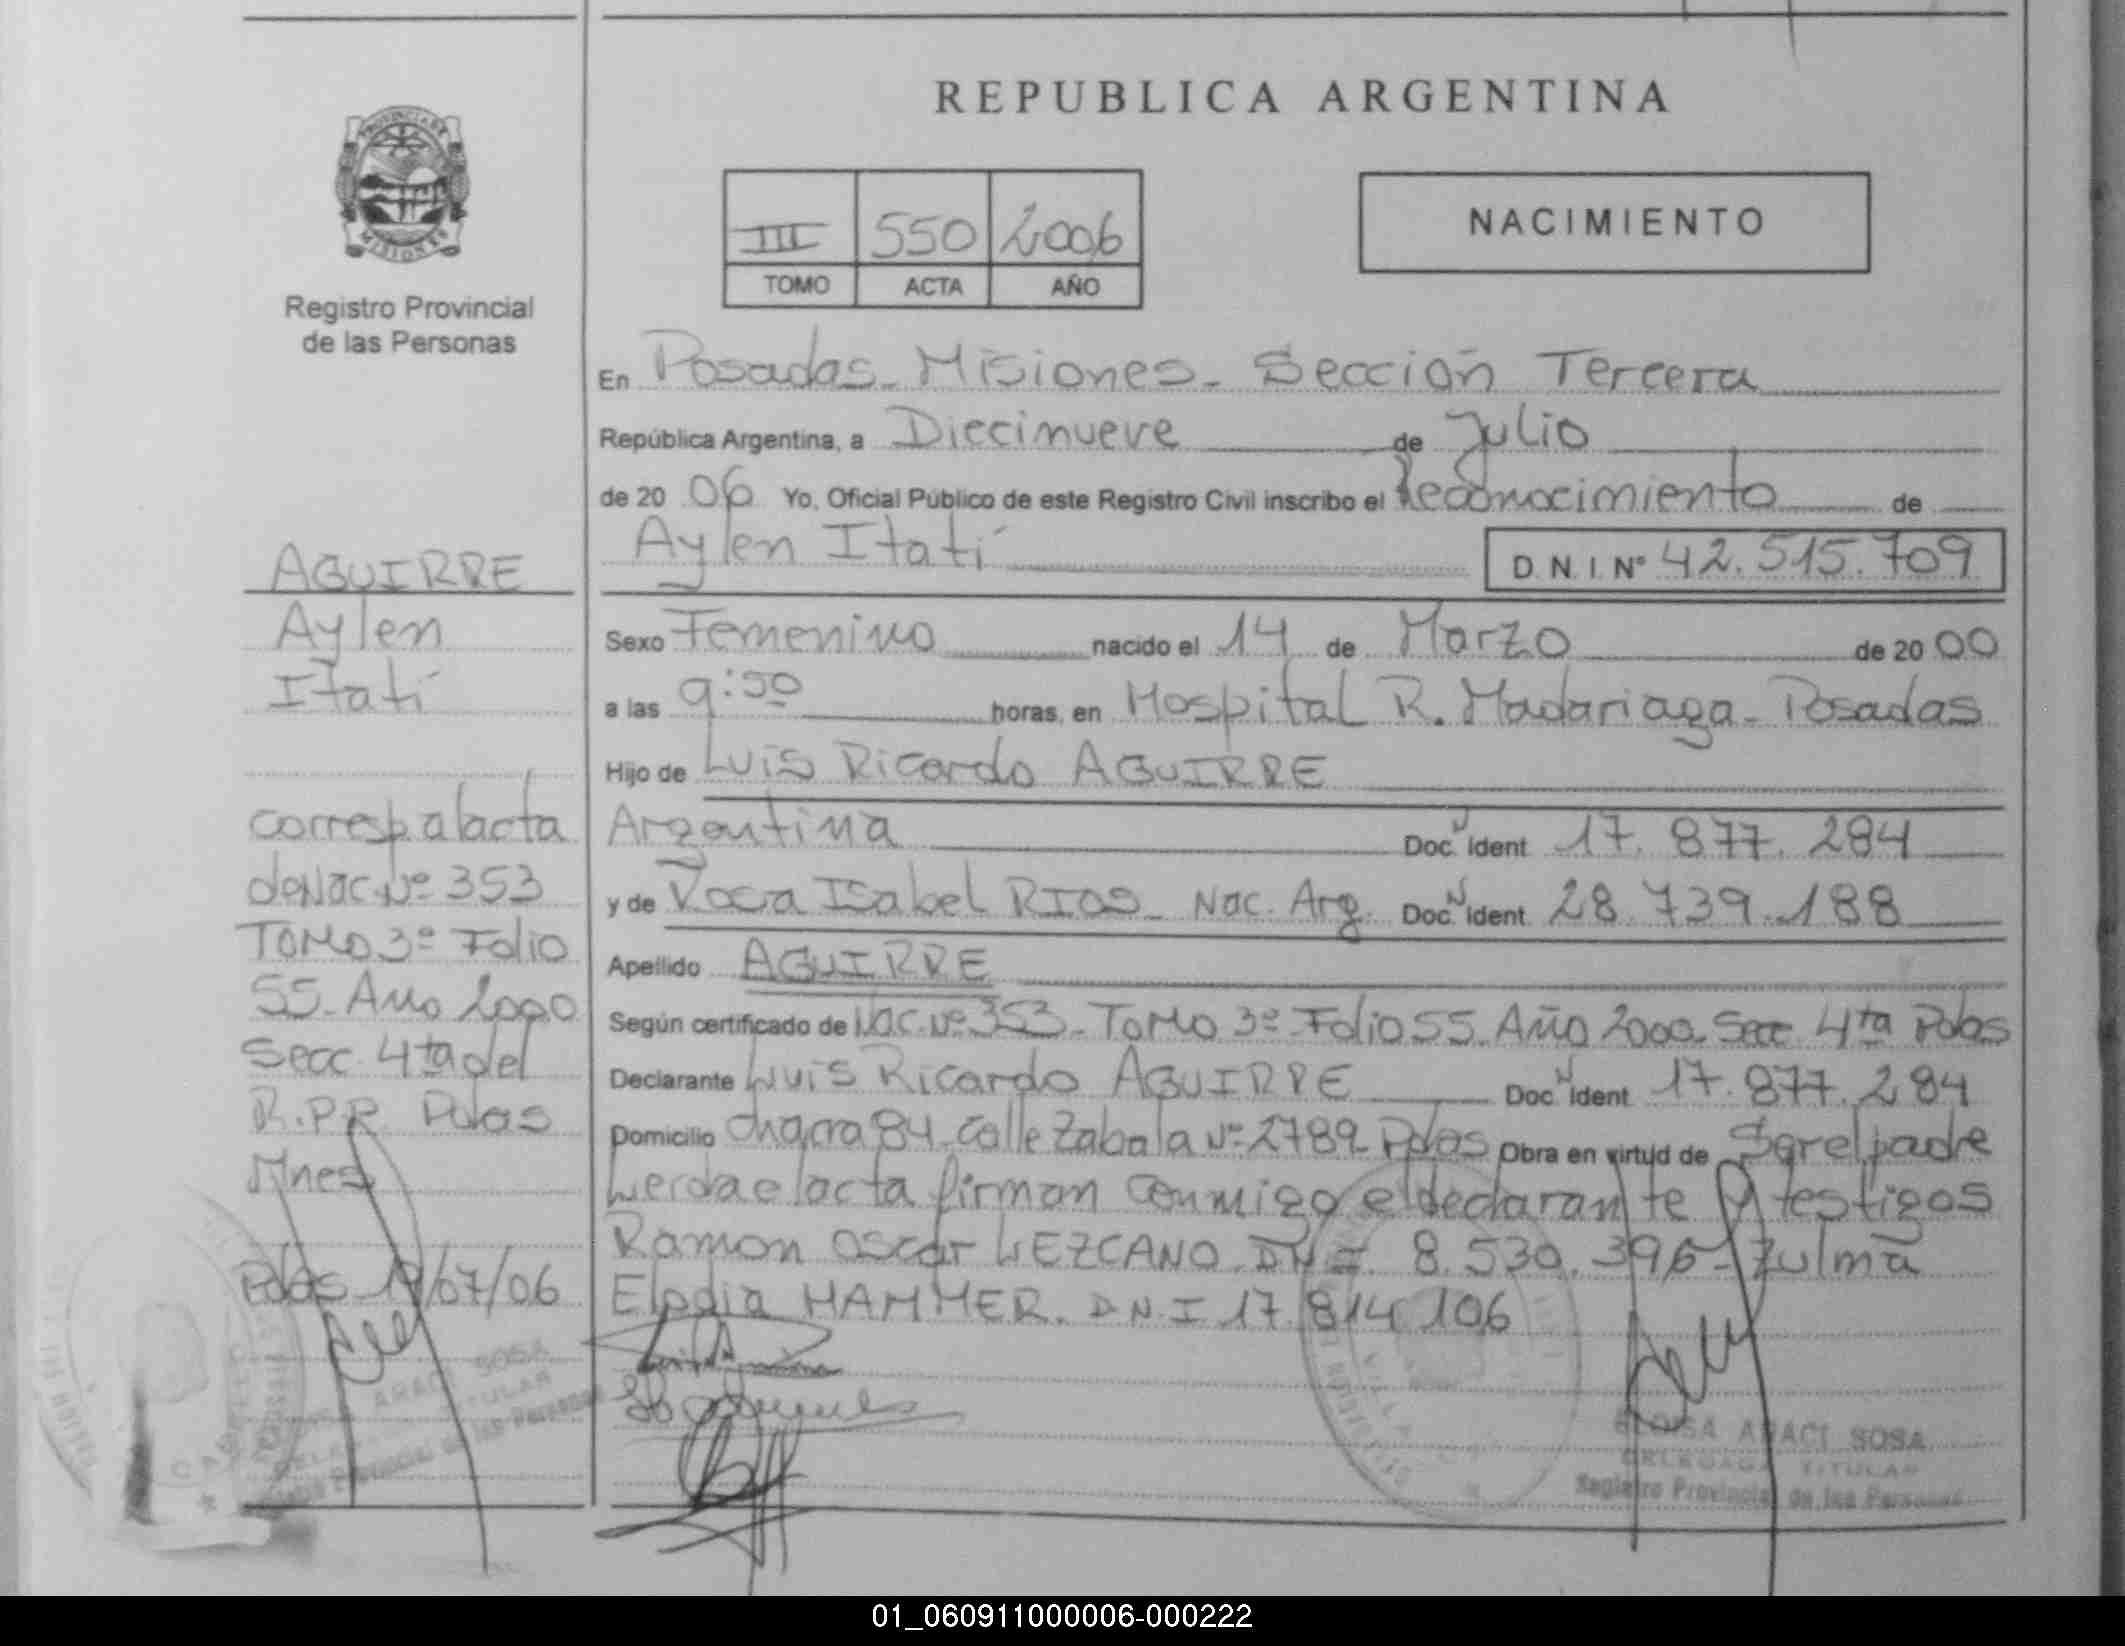 REPUBLICA ARGENTINA
PROVINCIA DE
MISIONES
Registro Provincial
de las Personas
III 550 2006
TOMO ACTA AÑO
NACIMIENTO
En Posadas - Misiones - Sección Tercera
República Argentina, a Diecinueve de Julio
de 20 06 Yo, Oficial Público de este Registro Civil inscribo el Reconocimiento de
Aylen Itatí D.N.I. Nº 42.515.709
Sexo Femenino nacido el 14 de Marzo de 20 00
a las 9:50 horas, en Hospital R. Madariaga - Posadas
Hijo de Luis Ricardo AGUIRRE
Argentina Doc. Ident. 17.877.284
y de Rosa Isabel RIOS - Nac. Arg. Doc. Ident. 28.739.188
Apellido AGUIRRE
Según certificado de Nac. Nº 353 - Tomo 3º Folio 55. Año 2000 - Secc 4ta Pdas
Declarante Luis Ricardo AGUIRRE Doc. Ident. 17.877.284
Domicilio chacra 84 calle Zabala Nº 2789 Pdas Obra en virtud de Ser el padre
Leida el acta firman conmigo el declarante y testigos
Ramon Oscar LEZCANO DNI 8.530.396 - Zulma
Elodia HAMMER. D.N.I 17.814.106
AGUIRRE
Aylen
Itatí
corresp. al acta
de Nac. Nº 353
Tomo 3º Folio
55 - Año 2000
Secc 4ta del
R.P.P. Pdas
Mnes
Pdas 19/07/06
ARACI SOSA
TITULAR
Provincial de las Personas
ELOISA ARACI SOSA
DELEGADA TITULAR
Registro Provincial de las Personas
01_060911000006-000222